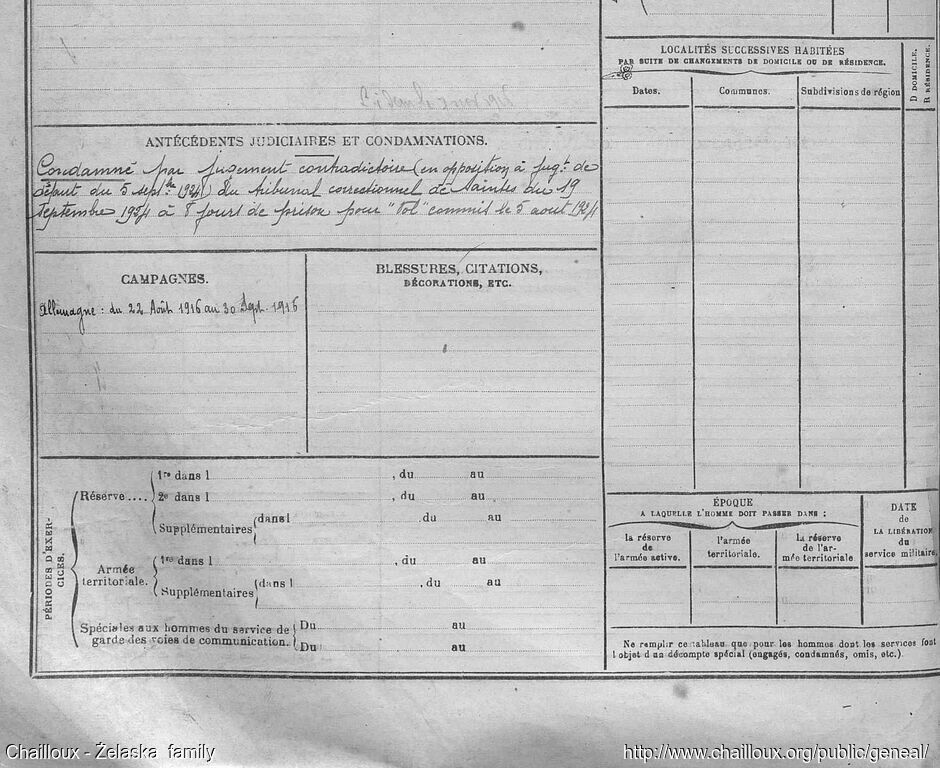 LOCALITÉS SUCCESSIVES HABITÉES
PAR SUITE DE CHANGEMENTS DE DOMICILE OU DE RÉSIDENCE.
Dates.
Communes.
Subdivisions de région
D DOMICILE.
R RÉSIDENCE.
ANTÉCÉDENTS JUDICIAIRES ET CONDAMNATIONS.
Condamné par jugement contradictoire (en opposition à jugt. de
défaut du 5 septbre 1924) du tribunal correctionnel de Saintes du 19
Septembre 1924 à 8 jours de prison pour "Vol" commis le 5 aout 1924
CAMPAGNES.
Allemagne : du 22 Août 1916 au 30 Sept. 1916
BLESSURES, CITATIONS,
DÉCORATIONS, ETC.
PÉRIODES D'EXER-
CICES.
Réserve....
1re dans l , du au
2e dans l , du au
Supplémentaires dans l .du au
Armée
territoriale.
1re dans l , du au
Supplémentaires dans l , du au
Spéciales aux hommes du service de
garde des voies de communication.
Du au
Du au
ÉPOQUE
A LAQUELLE L'HOMME DOIT PASSER DANS :
la réserve
de
l'armée active.
l'armée
territoriale.
la réserve
de l'ar-
mée territoriale
DATE
de
LA LIBÉRATION
du
service militaire.
Ne remplir ce tableau que pour les hommes dont les services font
l'objet d'un décompte spécial (engagés, condamnés, omis, etc.)
Chailloux - Żelaska family
http://www.chailloux.org/public/geneal/